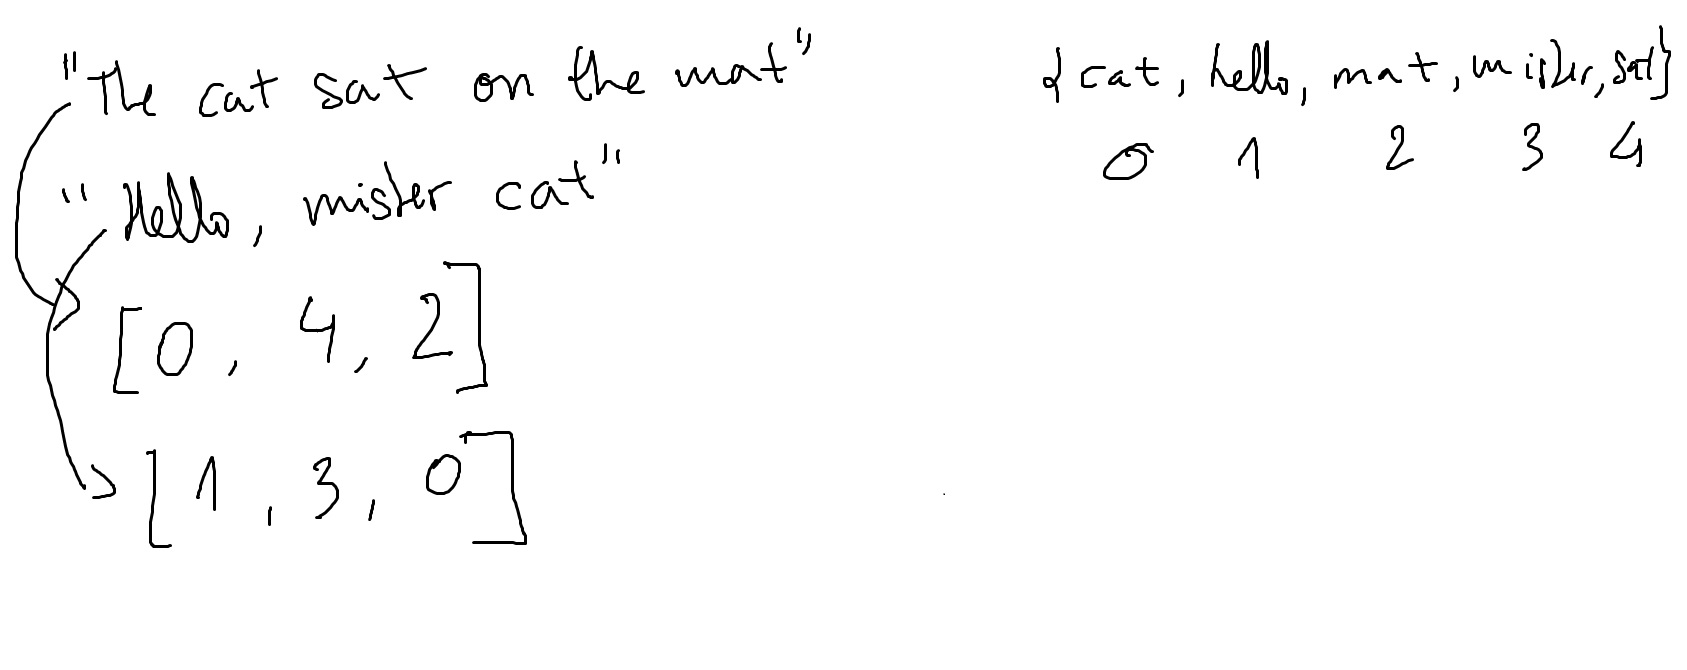 "The cat sat on the mat"
"Hello, mister cat"
[0, 4, 2]
[1, 3, 0]
{cat, hello, mat, mister, sat}
0 1 2 3 4